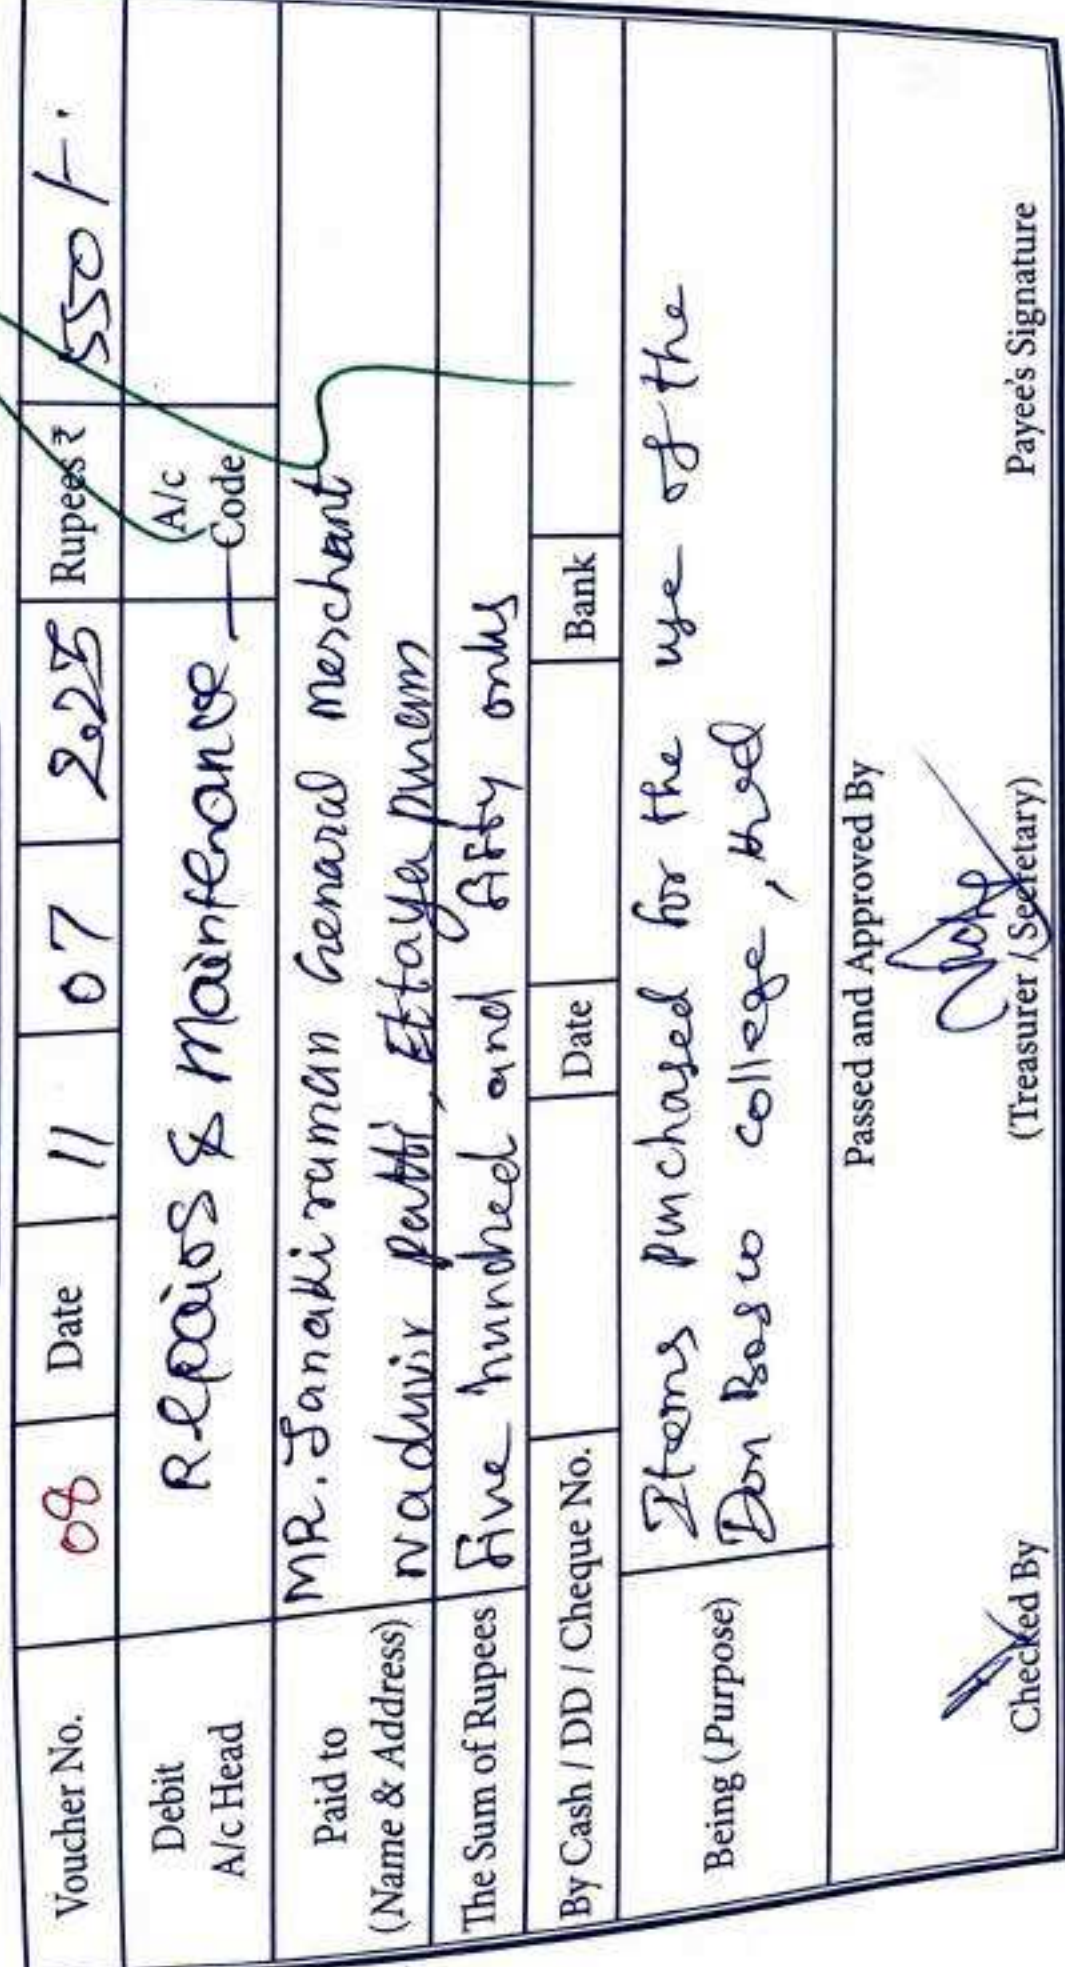 Voucher No. 08 Date 11 07 2025 Rupees ₹ 550/-.
Debit A/c Head Repairs & Maintenance A/c Code
Paid to (Name & Address) MR. Janakiraman General merchant
Naduvir patti, Ettayapuram
The Sum of Rupees Five hundred and fifty only
By Cash / DD / Cheque No. Date Bank
Being (Purpose) Items purchased for the use of the
Don Bosco college,
Passed and Approved By
Checked By (Treasurer / Secretary) Payee's Signature